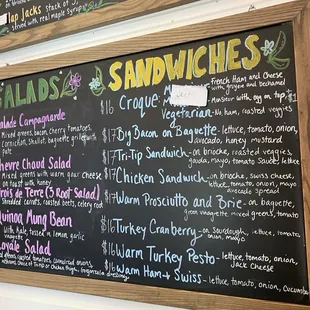 lap jacks stack of
served with real maple
SALADS
Salade Campagnarde
Mixed greens, bacon, cherry tomatoes,
Cornichon, Shallot, baguette grilled with
pate
Chevre Chaud Salad
Mixed greens with warm goat cheese
on toast with honey
Trois de Terre (3 Root Salad)
Shredded carrots, roasted beets, celery root
Quinoa Mung Bean
with kale, tossed in lemon garlic
vinaigrette
Royale Salad
SANDWICHES
$16 Croque
French Ham and Cheese
with gruyere and bechamel
Monsieur with egg on top +$1
Vegetarian - No ham, roasted veggies
$17 Big Bacon on Baguette - lettuce, tomato, onion,
avocado, honey mustard
$17 Tri-Tip Sandwich - on brioche, roasted veggies,
gouda, mayo, tomato sauce, lettuce
$17 Chicken Sandwich - on brioche, swiss cheese,
lettuce, tomato, onion, mayo
avocado spread
$17 Warm Prosciutto and Brie - on baguette,
vinaigrette mixed greens, tomato
$16 Turkey Cranberry - on Sourdough, lettuce, tomato,
onion, mayo
$16 Warm Turkey Pesto - lettuce, tomato, onion,
Jack Cheese
$16 Warm Ham + Swiss - lettuce, tomato, onion, cucumber